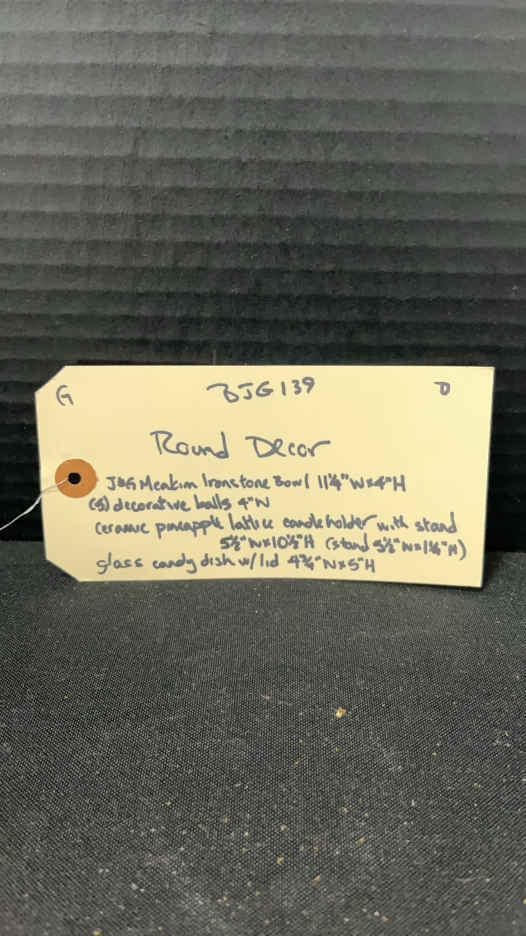 G BJG139 D
Round Decor
J&G Meakin Ironstone Bowl 11¼"W×4"H
(5) decorative balls 4"W
Ceramic pineapple lattice candleholder with stand
5½"W×10½"H (stand 5½"W×1¼"H)
glass candy dish w/lid 4¾"W×5"H